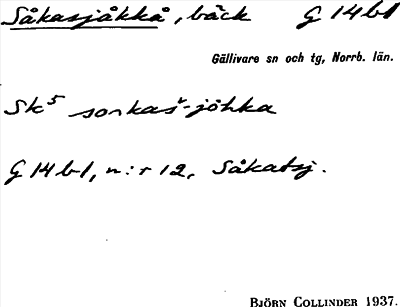 Såkasjåkkå, bäck G 14 b1
Gällivare sn och tg, Norrb. län.
Sk⁵ sorkaš-jöhka
G 14 b1, n:r 12, Såkatsj.
BJÖRN COLLINDER 1937.